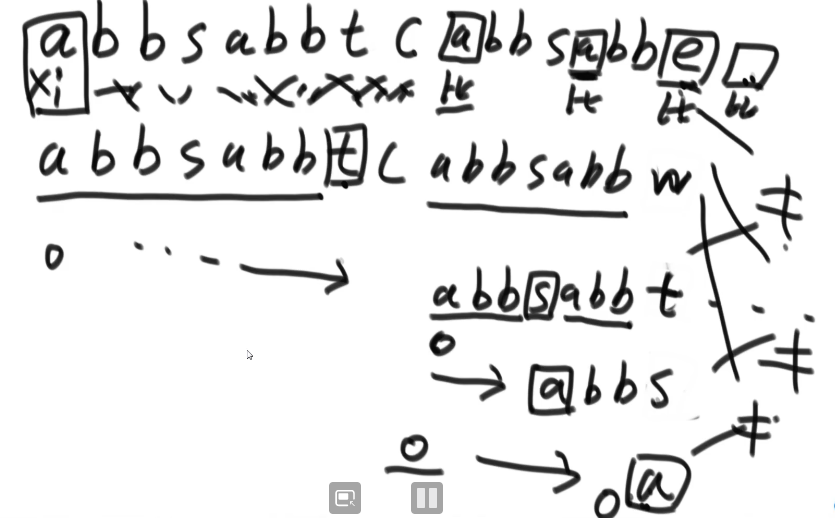 a b b s a b b t c a b b s a b b e
xi
a b b s a b b t c a b b s a b b w
≠
0
a b b s a b b t
0
≠
a b b s
≠
0
0 a